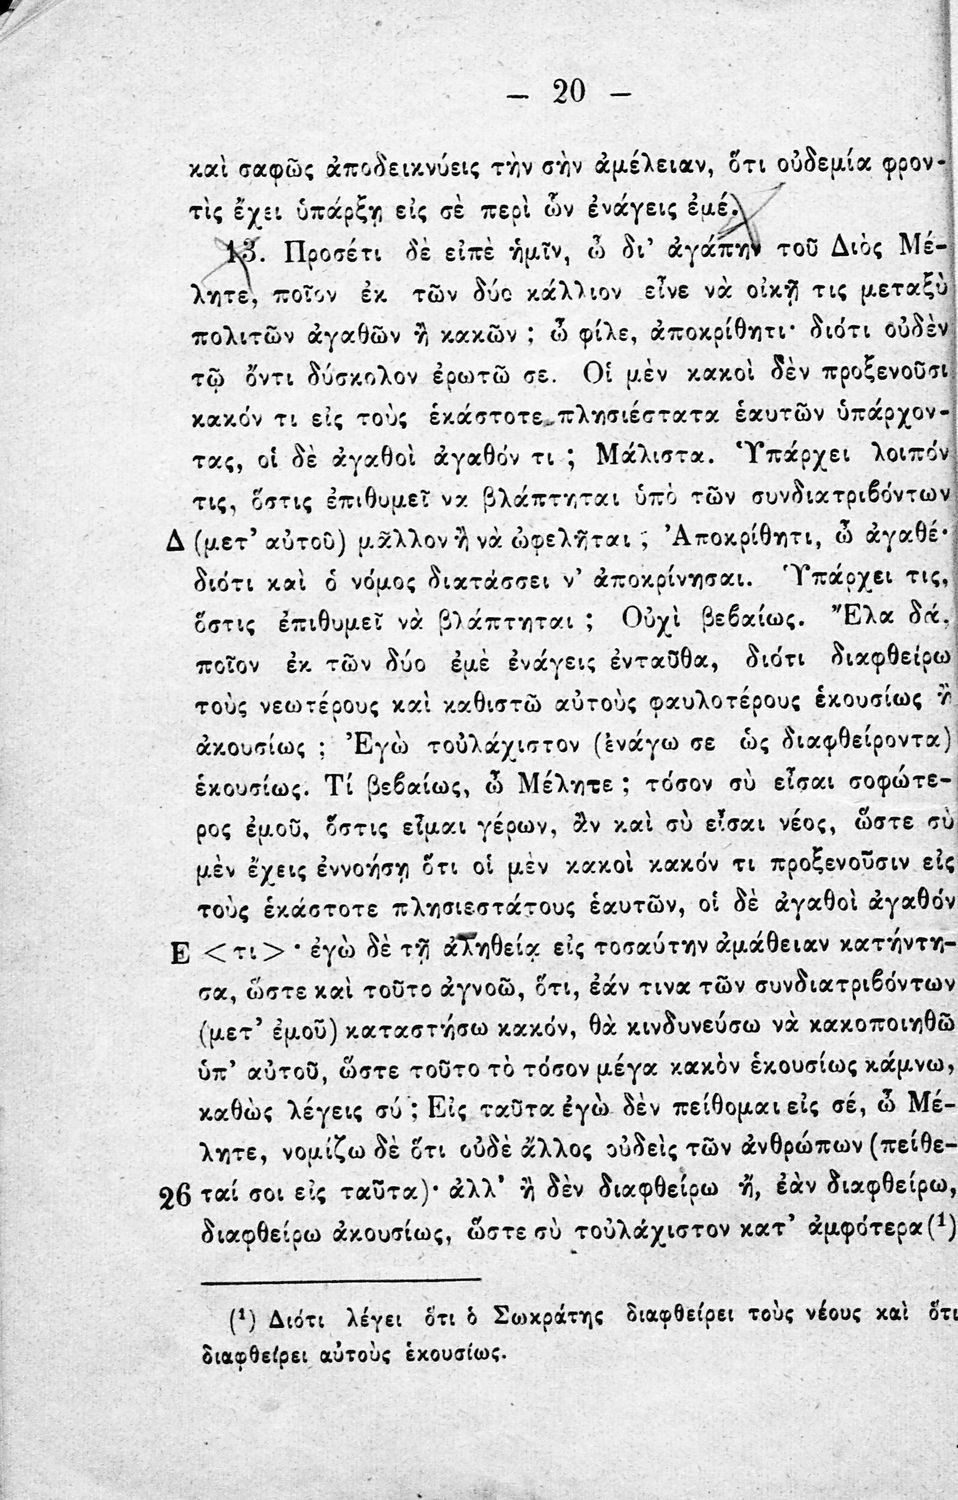 — 20 —
καὶ σαφῶς ἀποδεικνύεις τὴν σὴν ἀμέλειαν, ὅτι οὐδεμία φρον-
τὶς ἔχει ὑπάρξῃ εἰς σὲ περὶ ὧν ἐνάγεις ἐμέ.
13. Προσέτι δὲ εἰπὲ ἡμῖν, ὦ δι' ἀγάπην τοῦ Διὸς Μέ-
λητε, ποῖον ἐκ τῶν δύο κάλλιον εἶνε νὰ οἰκῇ τις μεταξὺ
πολιτῶν ἀγαθῶν ἢ κακῶν ; ὦ φίλε, ἀποκρίθητι· διότι οὐδὲν
τῷ ὄντι δύσκολον ἐρωτῶ σε. Οἱ μὲν κακοὶ δὲν προξενοῦσι
κακόν τι εἰς τοὺς ἑκάστοτε πλησιέστατα ἑαυτῶν ὑπάρχον-
τας, οἱ δὲ ἀγαθοὶ ἀγαθόν τι ; Μάλιστα. Ὑπάρχει λοιπόν
τις, ὅστις ἐπιθυμεῖ νὰ βλάπτηται ὑπὸ τῶν συνδιατριβόντων
Δ (μετ' αὐτοῦ) μᾶλλον ἢ νὰ ὠφελῆται ; Ἀποκρίθητι, ὦ ἀγαθέ·
διότι καὶ ὁ νόμος διατάσσει ν' ἀποκρίνησαι. Ὑπάρχει τις,
ὅστις ἐπιθυμεῖ νὰ βλάπτηται ; Οὐχὶ βεβαίως. Ἔλα δά,
ποῖον ἐκ τῶν δύο ἐμὲ ἐνάγεις ἐνταῦθα, διότι διαφθείρω
τοὺς νεωτέρους καὶ καθιστῶ αὐτοὺς φαυλοτέρους ἑκουσίως ἢ
ἀκουσίως ; Ἐγὼ τοὐλάχιστον (ἐνάγω σε ὡς διαφθείροντα)
ἑκουσίως. Τί βεβαίως, ὦ Μέλητε ; τόσον σὺ εἶσαι σοφώτε-
ρος ἐμοῦ, ὅστις εἶμαι γέρων, ἂν καὶ σὺ εἶσαι νέος, ὥστε σὺ
μὲν ἔχεις ἐννοήσῃ ὅτι οἱ μὲν κακοὶ κακόν τι προξενοῦσιν εἰς
τοὺς ἑκάστοτε πλησιεστάτους ἑαυτῶν, οἱ δὲ ἀγαθοὶ ἀγαθόν
Ε <τι>· ἐγὼ δὲ τῇ ἀληθείᾳ εἰς τοσαύτην ἀμάθειαν κατήντη-
σα, ὥστε καὶ τοῦτο ἀγνοῶ, ὅτι, ἐάν τινα τῶν συνδιατριβόντων
(μετ' ἐμοῦ) καταστήσω κακόν, θὰ κινδυνεύσω νὰ κακοποιηθῶ
ὑπ' αὐτοῦ, ὥστε τοῦτο τὸ τόσον μέγα κακὸν ἑκουσίως κάμνω,
καθὼς λέγεις σύ ; Εἰς ταῦτα ἐγὼ δὲν πείθομαι εἰς σέ, ὦ Μέ-
λητε, νομίζω δὲ ὅτι οὐδὲ ἄλλος οὐδεὶς τῶν ἀνθρώπων (πείθε-
26 ταί σοι εἰς ταῦτα)· ἀλλ' ἢ δὲν διαφθείρω ἤ, ἐὰν διαφθείρω,
διαφθείρω ἀκουσίως, ὥστε σὺ τοὐλάχιστον κατ' ἀμφότερα (¹)
(¹) Διότι λέγει ὅτι ὁ Σωκράτης διαφθείρει τοὺς νέους καὶ ὅτι
διαφθείρει αὐτοὺς ἑκουσίως.